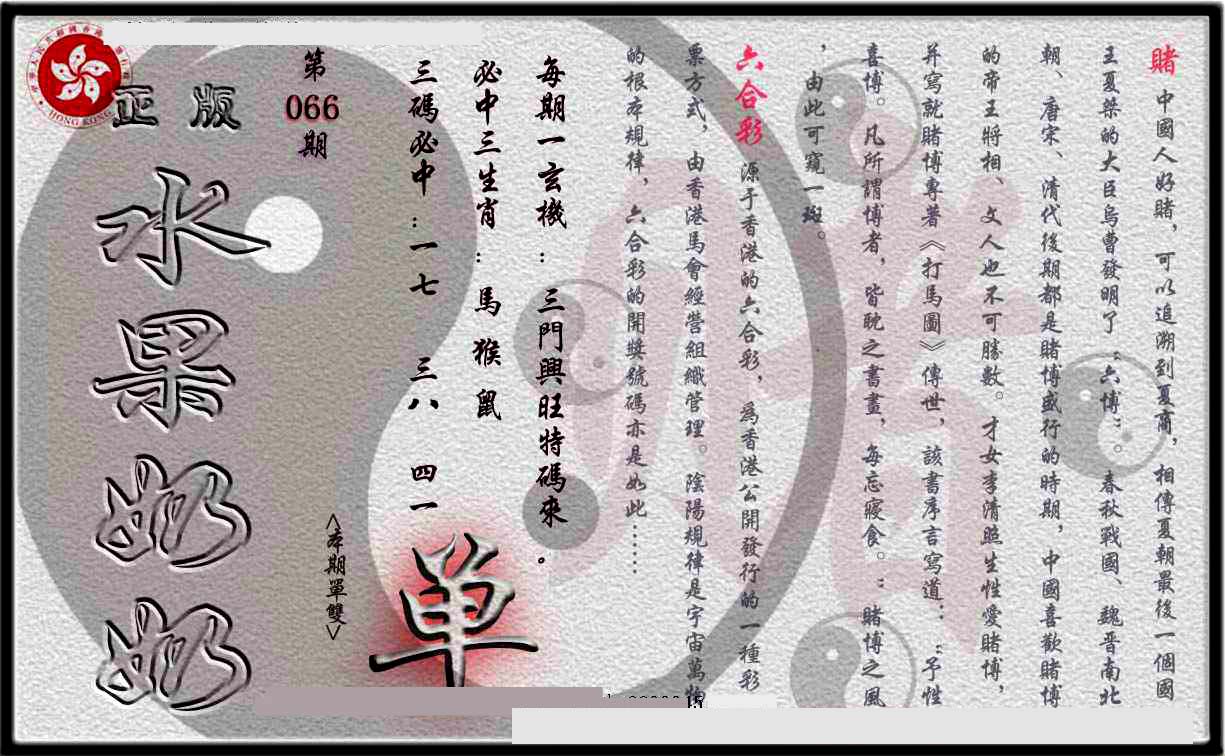 賭 中國人好賭，可以追溯到夏商，相傳夏朝最後一個國
王夏桀的大臣烏曹發明了“六博”。春秋戰國、魏晉南北
朝、唐宋、清代後期都是賭博盛行的時期，中國喜歡賭博
的帝王將相、文人也不可勝數。才女李清照生性愛賭博，
并寫就賭博專著《打馬圖》傳世，該書序言寫道：“予性
喜博。凡所謂博者，皆耽之書畫，每忘寢食。”賭博之風
，由此可窺一斑。
六合彩 源于香港的六合彩，為香港公開發行的一種彩
票方式，由香港馬會經營組織管理。陰陽規律是宇宙萬物
的根本規律，六合彩的開獎號碼亦是如此……
每期一玄機：三門興旺特碼來。
必中三生肖：馬猴鼠
三碼必中：一七 三八 四一
單
<本期單雙>
第
066
期
正版
水果奶奶
HONG KONG